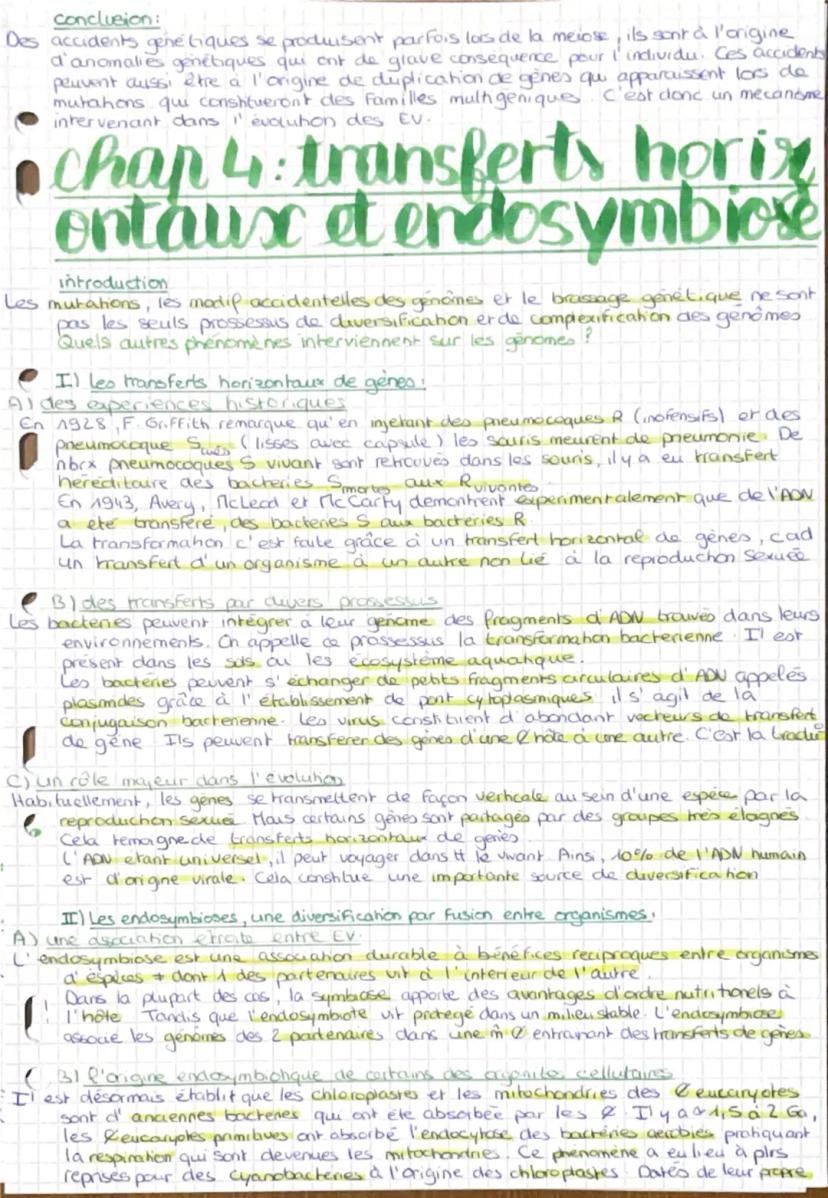 conclusion:
Des accidents génétiques se produisent parfois lors de la meiose, ils sont à l'origine
d'anomalies génétiques qui ont de glave conséquence pour l'individu. Ces accidents
peuvent aussi être à l'origine de duplication de gènes qui apparaissent lors de
mutations qui constitueront des familles multigéniques. C'est donc un mécanisme
intervenant dans l'évolution des EV.
chap 4: transferts horiz
ontaux et endosymbiose
introduction
Les mutations, les modif accidentelles des génomes et le brassage génétique ne sont
pas les seuls prossessus de diversification et de complexification des génomes
Quels autres phénomènes interviennent sur les génomes?
I) Les transferts horizontaux de gènes:
A) des experiences historiques
En 1928, F. Griffith remarque qu'en injetant des pneumocoques R (inofensifs) et des
pneumocoque S (lisses avec capsule) les souris meurent de pneumonie. De
nbrx pneumocoques S vivant sont retrouvés dans les souris, il y a eu transfert
héréditaire des bacteries S mortes aux R vivantes.
En 1943, Avery, McLeod et McCarty demontrent experimentalement que de l'ADN
a été transféré, des bacteries S aux bactéries R.
La transformation c'est faite grâce à un transfert horizontal de gènes, cad
un transfert d'un organisme à un autre non lié à la reproduction sexuée
B) des transferts par divers prossessus
Les bacteries peuvent intégrer à leur genome des fragments d'ADN trouvés dans leurs
environnements. On appelle ce prossessus la transformation bacterienne. Il est
présent dans les sols ou les écosystème aquatique.
Les bactéries peuvent s'échanger de petits fragments circulaires d'ADN appelés
plasmides grâce à l'établissement de pont cytoplasmiques il s'agit de la
conjugaison bacterienne. Les virus constituent d'abondant vecteurs de transfert
de gène. Ils peuvent transferer des gènes d'une ₵ hôte à une autre. C'est la
C) un rôle majeur dans l'évolution
Habituellement, les gènes se transmettent de façon verticale au sein d'une espèce par la
reproduction sexuée. Mais certains gènes sont partagés par des groupes très éloignés.
Cela temoigne de transferts horizontaux de genes
L'ADN étant universel, il peut voyager dans tt le vivant. Ainsi, 10% de l'ADN humain
est d'origne virale. Cela constitue une importante source de diversification
II) Les endosymbioses, une diversification par fusion entre organismes.
A) une association étroite entre EV.
L'endosymbiose est une association durable à bénéfices reciproques entre organismes
d'espèces ≠ dont 1 des partenaires vit à l'interieur de l'autre.
Dans la plupart des cas, la symbiose apporte des avantages d'ordre nutritionels à
l'hôte. Tandis que l'endosymbiote vit protégé dans un milieu stable. L'endosymbiose
associe les génomes des 2 partenaires dans une m̂ ₵ entrainant des transferts de gènes.
B) l'origine endosymbiotique de certains des organites cellulaires
Il est désormais établit que les chloroplastes et les mitochondries des ₵ eucaryotes
sont d'anciennes bacteries qui ont été absorbée par les ₵. Il y a ≈ 1,5 à 2 Ga,
les ₵ eucaryotes primitives ont absorbé l'endocytose des bactéries aerobies pratiquant
la respiration qui sont devenues les mitochondries. Ce phénomène a eu lieu à plrs
reprises pour des cyanobactéries à l'origine des chloroplastes. Dotés de leur propre